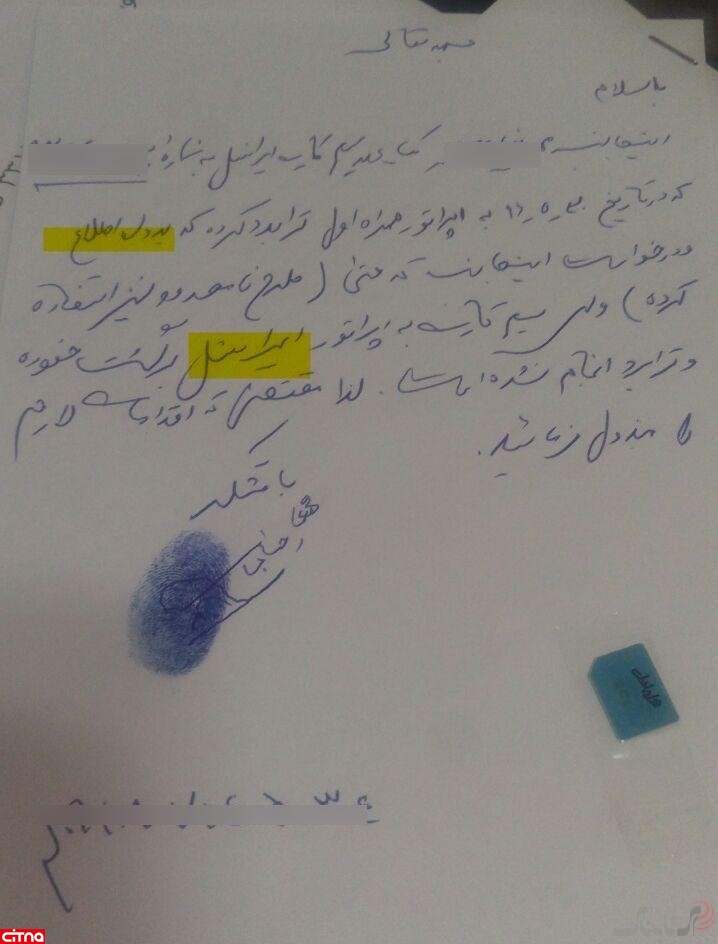 بسمه تعالی
باسلام
اینجانب در کتابی سیم کارت ایرانسل به شماره
که در تاریخ به اپراتور همراه اول ترابرد کرده که بدون اطلاع
و درخواست اینجانب که حتی ( طرح نامحدود نیز استفاده
کرده ) ولی سیم کارت به اپراتور ایرانسل برگشت خورده
و ترابرد انجام نشده است. لذا مقتضی که اقدامات لازم
را مبذول فرمائید.
با تشکر
همراه اول
citna
سیتنا